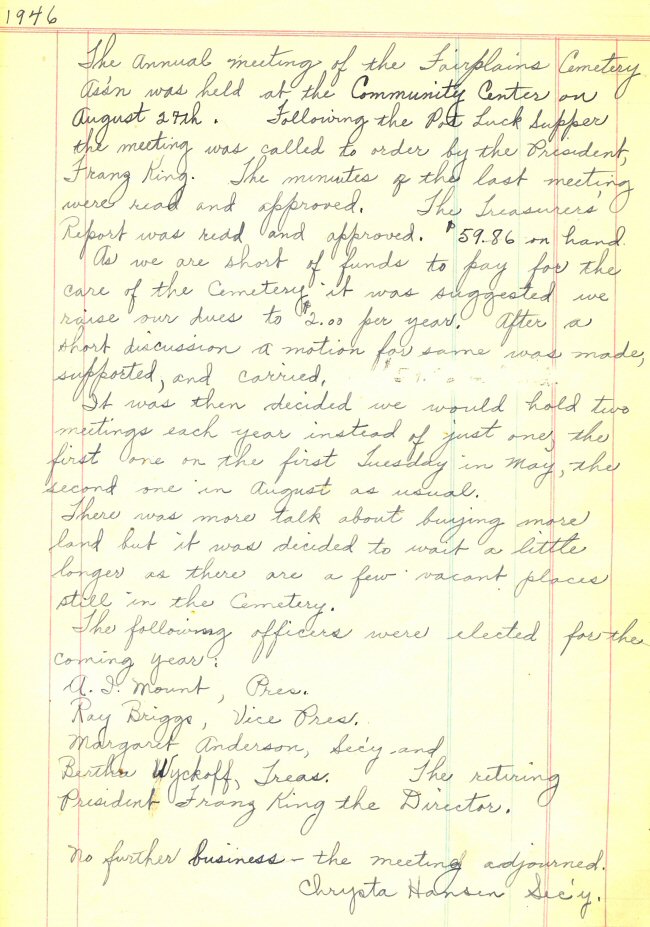 1946
The annual meeting of the Fairplains Cemetery
Ass'n was held at the Community Center on
August 27th. Following the Pot Luck Supper
the meeting was called to order by the President,
Franz King. The minutes of the last meeting
were read and approved. The Treasurers'
Report was read and approved. $59.86 on hand.
As we are short of funds to pay for the
care of the Cemetery it was suggested we
raise our dues to $2.00 per year. After a
short discussion a motion for same was made,
supported, and carried.
It was then decided we would hold two
meetings each year instead of just one, the
first one on the first Tuesday in May, the
second one in August as usual.
There was more talk about buying more
land but it was decided to wait a little
longer as there are a few vacant places
still in the Cemetery.
The following officers were elected for the
coming year:
A. I. Mount, Pres.
Ray Briggs, Vice Pres.
Margaret Anderson, Sec'y and
Bertha Wyckoff, Treas. The retiring
President Franz King the Director.
No further business – the meeting adjourned.
Chrysta Hansen Sec'y.